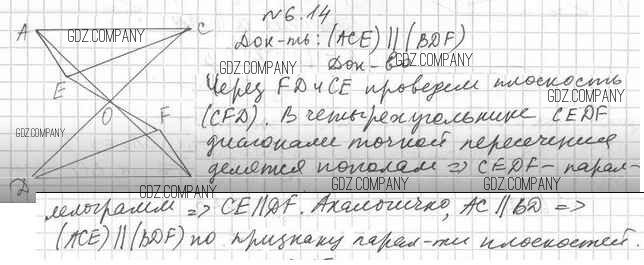 N 6.14
A C
GDZ.COMPANY
Док-ть: (ACE) || (BDF)
GDZ.COMPANY GDZ.COMPANY
Док-во
E
Через FD и CE проведем плоскость
GDZ.COMPANY
O F
(CFD). В четырехугольнике CEDF
GDZ.COMPANY
диагонали точкой пересечения
GDZ.COMPANY
делятся пополам => CEDF - парал-
D
GDZ.COMPANY GDZ.COMPANY GDZ.COMPANY
лелограмм => CE || DF. Аналогично, AC || BD =>
(ACE) || (BDF) по признаку парал-ти плоскостей.